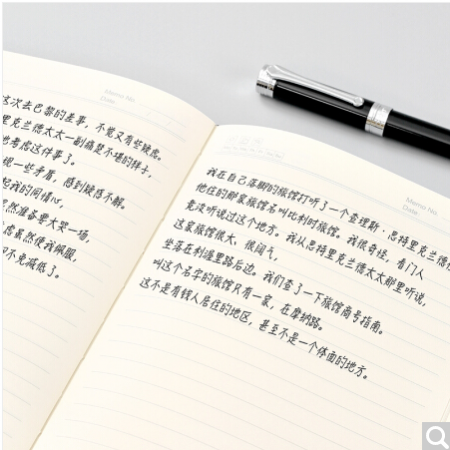 Memo No.
Date
这次去巴黎的差事，不觉又有些疑虑。
里克兰德太太一副痛楚不堪的样子，
地考虑这件事了。
现一些矛盾，感到疑惑不解。
些我的同情心，
果然准备要大哭一场，
虑虽然使我佩服，
却不免减低了。
Memo No.
Date
我在自己落脚的旅馆打听了一个查理斯·思特里克兰德
他住的那家旅馆名叫比利时旅馆。我很奇怪，看门人
竟没听说过这个地方。我从思特里克兰德太太那里听说，
这家旅馆很大，很阔气，
坐落在利渥里路后边。我们查了一下旅馆商号指南。
叫这个名字的旅馆只有一家，在摩纳路。
这不是有钱人居住的地区，甚至不是一个体面的地方。